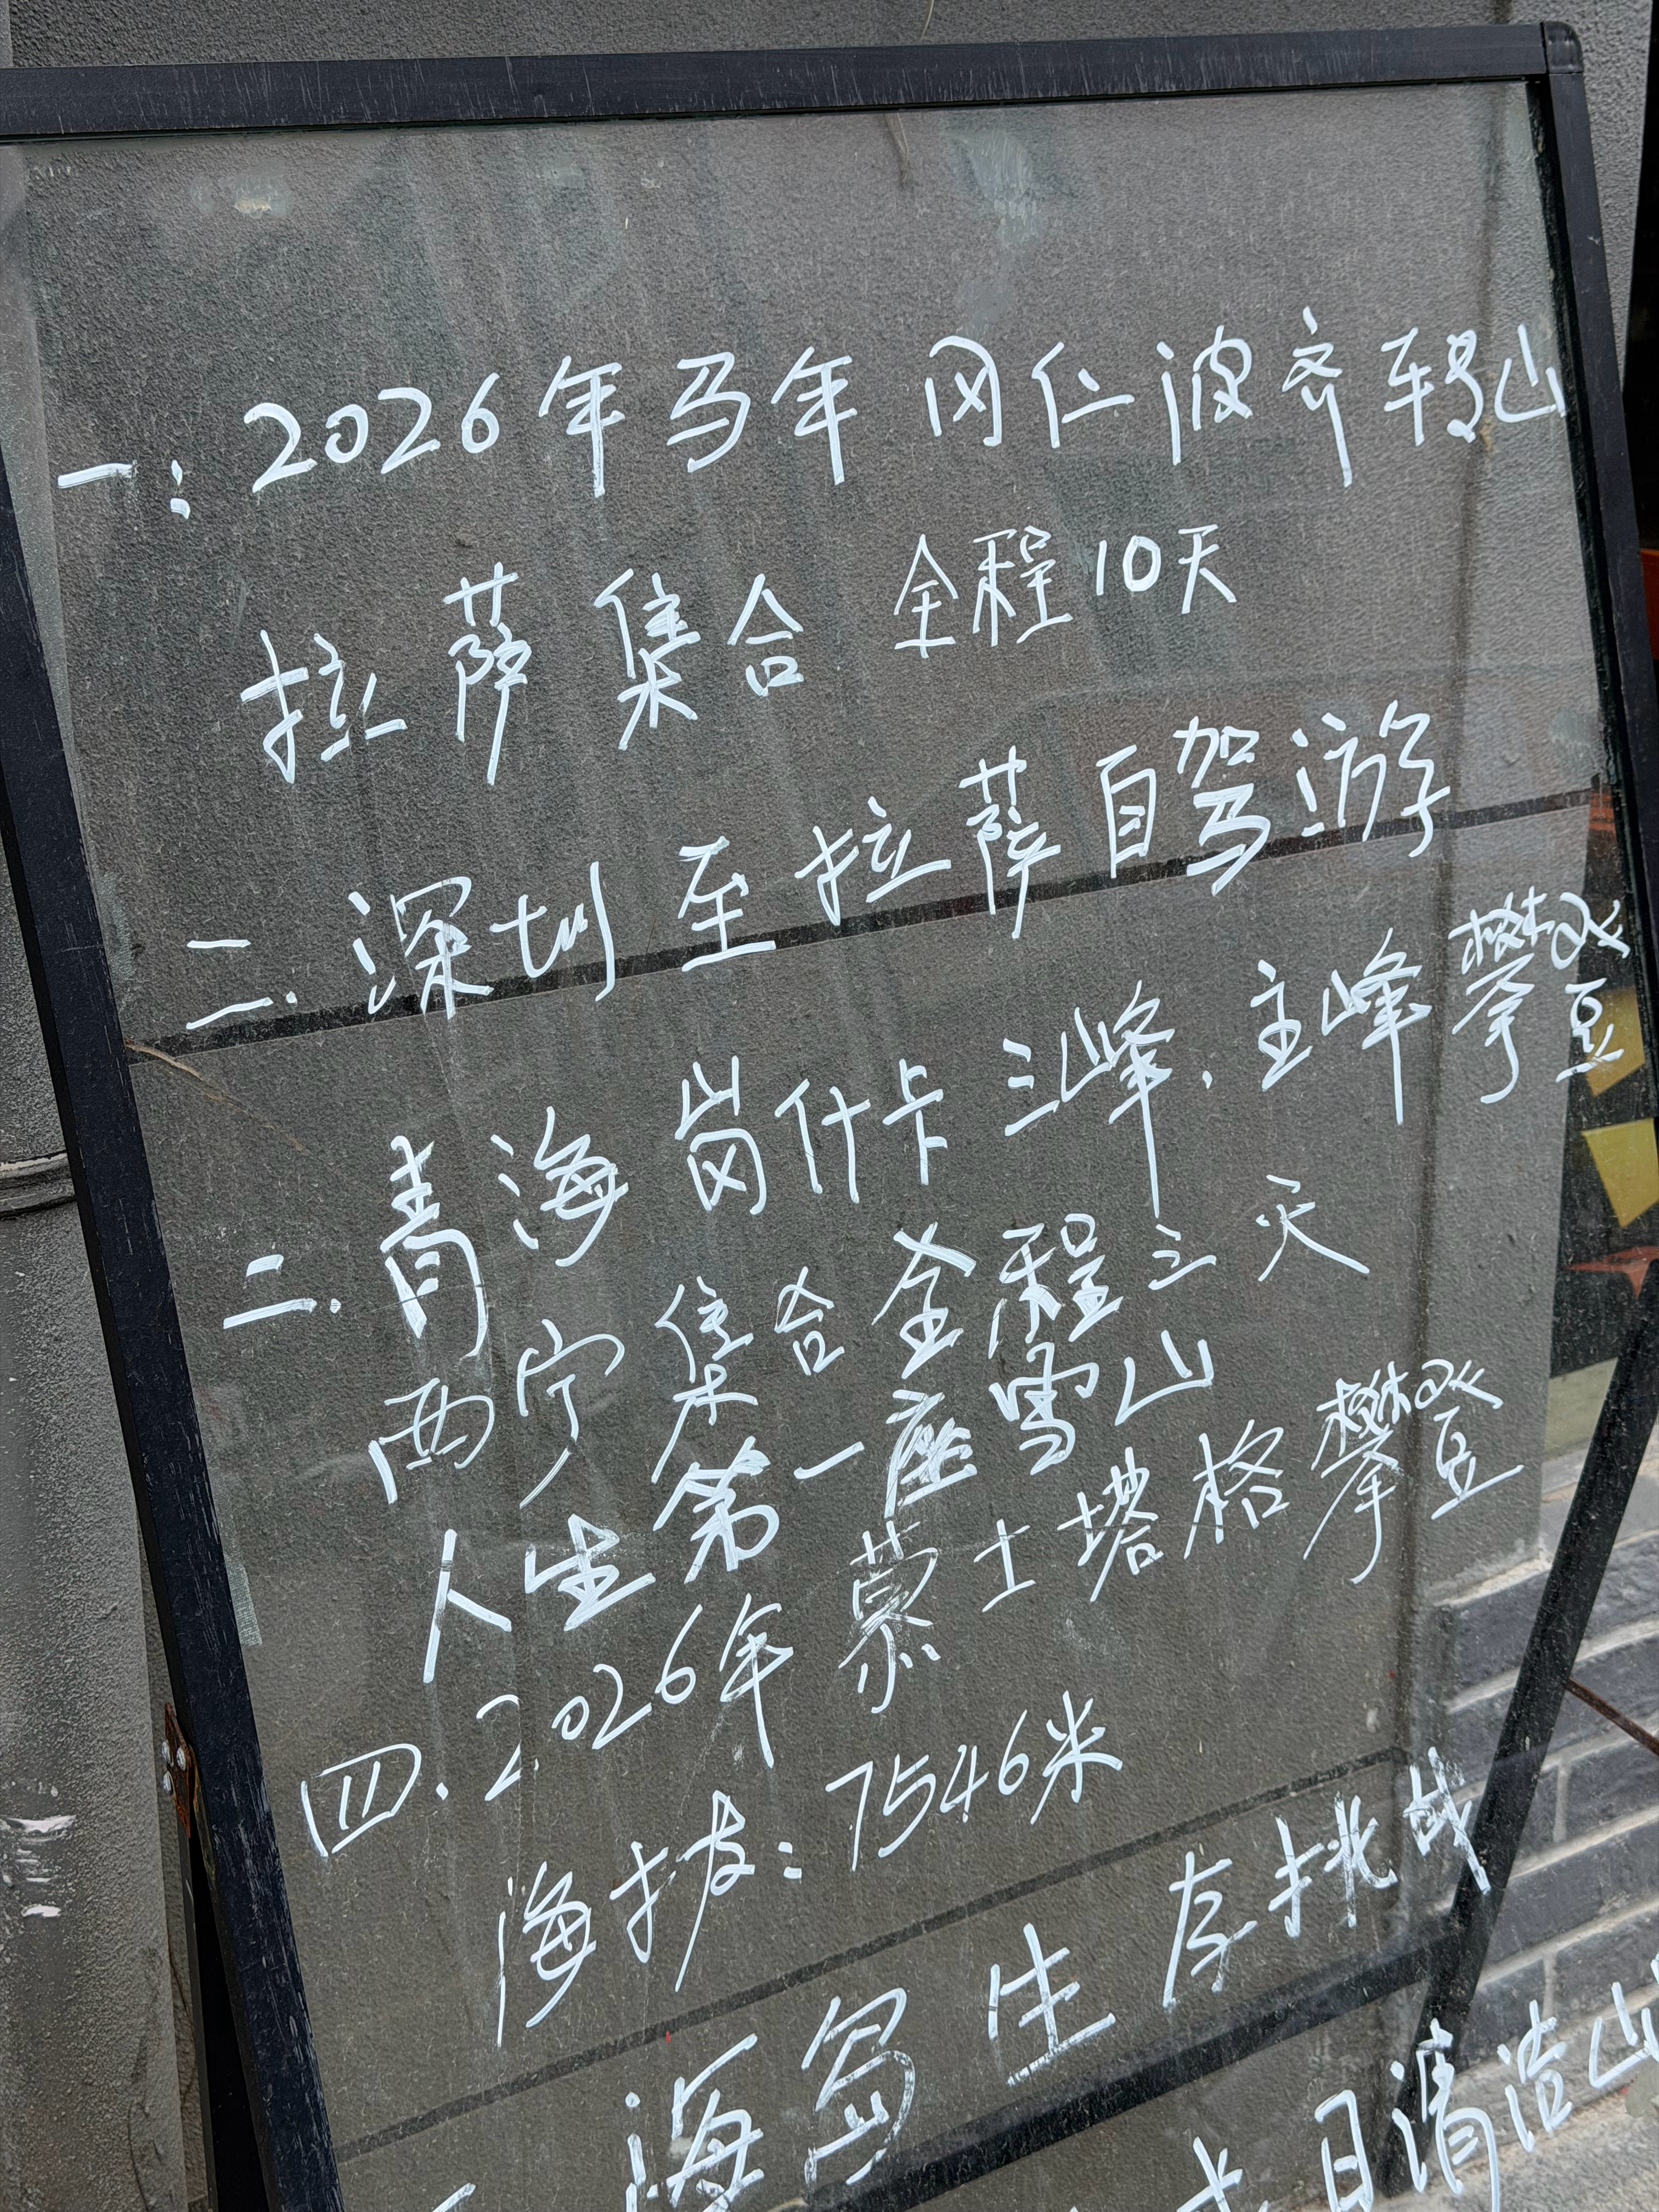 一：2026年马年 冈仁波齐转山
拉萨集合 全程10天
二.深圳至拉萨自驾游
二.青海岗什卡三峰.主峰攀登
西宁集合全程三天
人生第一座雪山
四.2026年慕士塔格攀登
海拔：7546米
海岛生存挑战
日清洁山